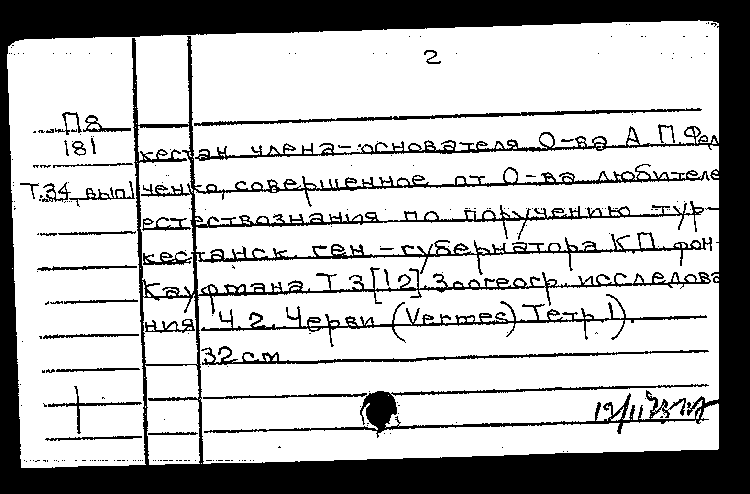 2
П8
181
кестан члена-основателя О-ва А.П.Фед
Т.34, вып1
ченко, совершенное от О-ва любителе
естествознания по поручению тур-
кестанск. ген.-губернатора К.П. фон-
Кауфмана. Т.3[12]. Зоогеогр. исследова
ния. Ч.2. Черви (Vermes) Тетр.1).
32 см